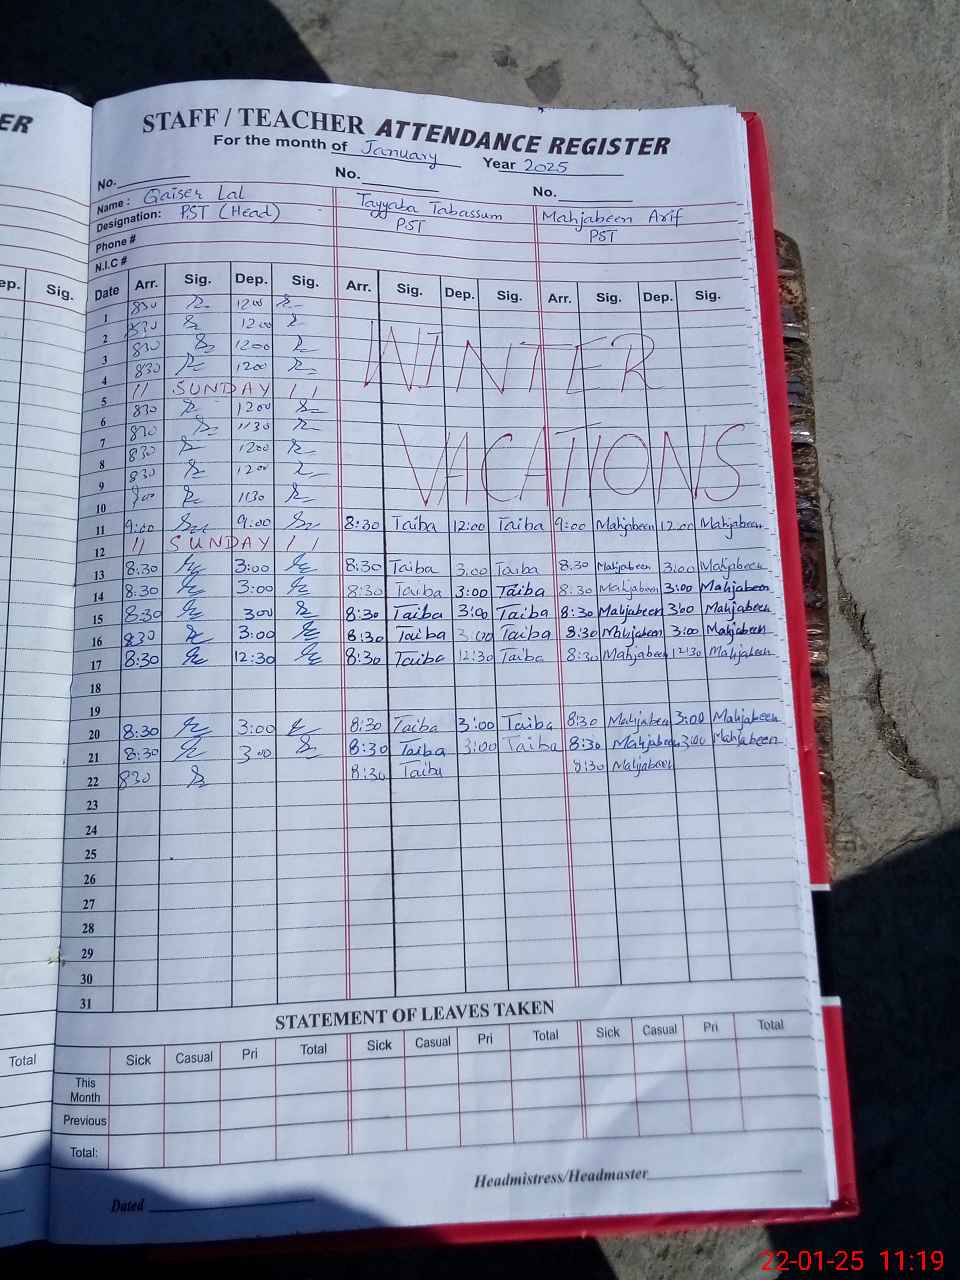 ER
STAFF / TEACHER ATTENDANCE REGISTER
For the month of January Year 2025
No. No. No.
Name : Qaiser Lal Tayyaba Tabassum Mahjabeen Arif
Designation: PST (Head) PST PST
Phone #
N.I.C #
ep. Sig. Date Arr. Sig. Dep. Sig. Arr. Sig. Dep. Sig. Arr. Sig. Dep. Sig.
1 830 1200
2 830 1200
3 830 1200
4 830 1200
WINTER
5 11 SUNDAY 11
6 830 1200
7 830 1130
8 830 1200
VACATIONS
9 830 1200
10 1130
11 9:00 9:00 8:30 Taiba 12:00 Taiba 9:00 Mahjabeen 12.00 Mahjabeen
12 11 SUNDAY 11
13 8:30 3:00 8:30 Taiba 3:00 Taiba 8:30 Mahjabeen 3:00 Mahjabeen
14 8:30 3:00 8:30 Taiba 3:00 Taiba 8:30 Mahjabeen 3:00 Mahjabeen
15 8:30 300 8:30 Taiba 3:00 Taiba 8:30 Mahjabeen 3:00 Mahjabeen
16 830 3:00 8:30 Taiba 3:00 Taiba 8:30 Mahjabeen 3:00 Mahjabeen
17 8:30 12:30 8:30 Taiba 12:30 Taiba 8:30 Mahjabeen 12:30 Mahjabeen
18
19
20 8:30 3:00 8:30 Taiba 3:00 Taiba 8:30 Mahjabeen 3:00 Mahjabeen
21 8:30 3:00 8:30 Taiba 3:00 Taiba 8:30 Mahjabeen 3:00 Mahjabeen
22 830 8:30 Taiba 8:30 Mahjabeen
23
24
25
26
27
28
29
30
31
STATEMENT OF LEAVES TAKEN
Total Sick Casual Pri Total Sick Casual Pri Total Sick Casual Pri Total
This
Month
Previous
Total:
Headmistress/Headmaster
Dated
22-01-25 11:19